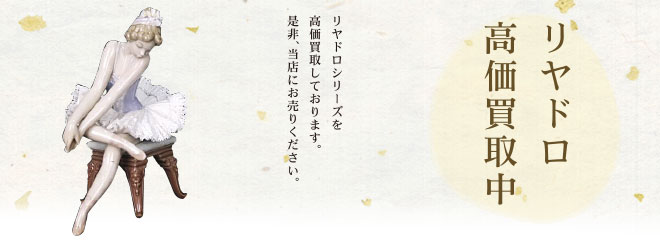 リヤドロ
高価買取中
リヤドロシリーズを
高価買取しております。
是非、当店にお売りください。